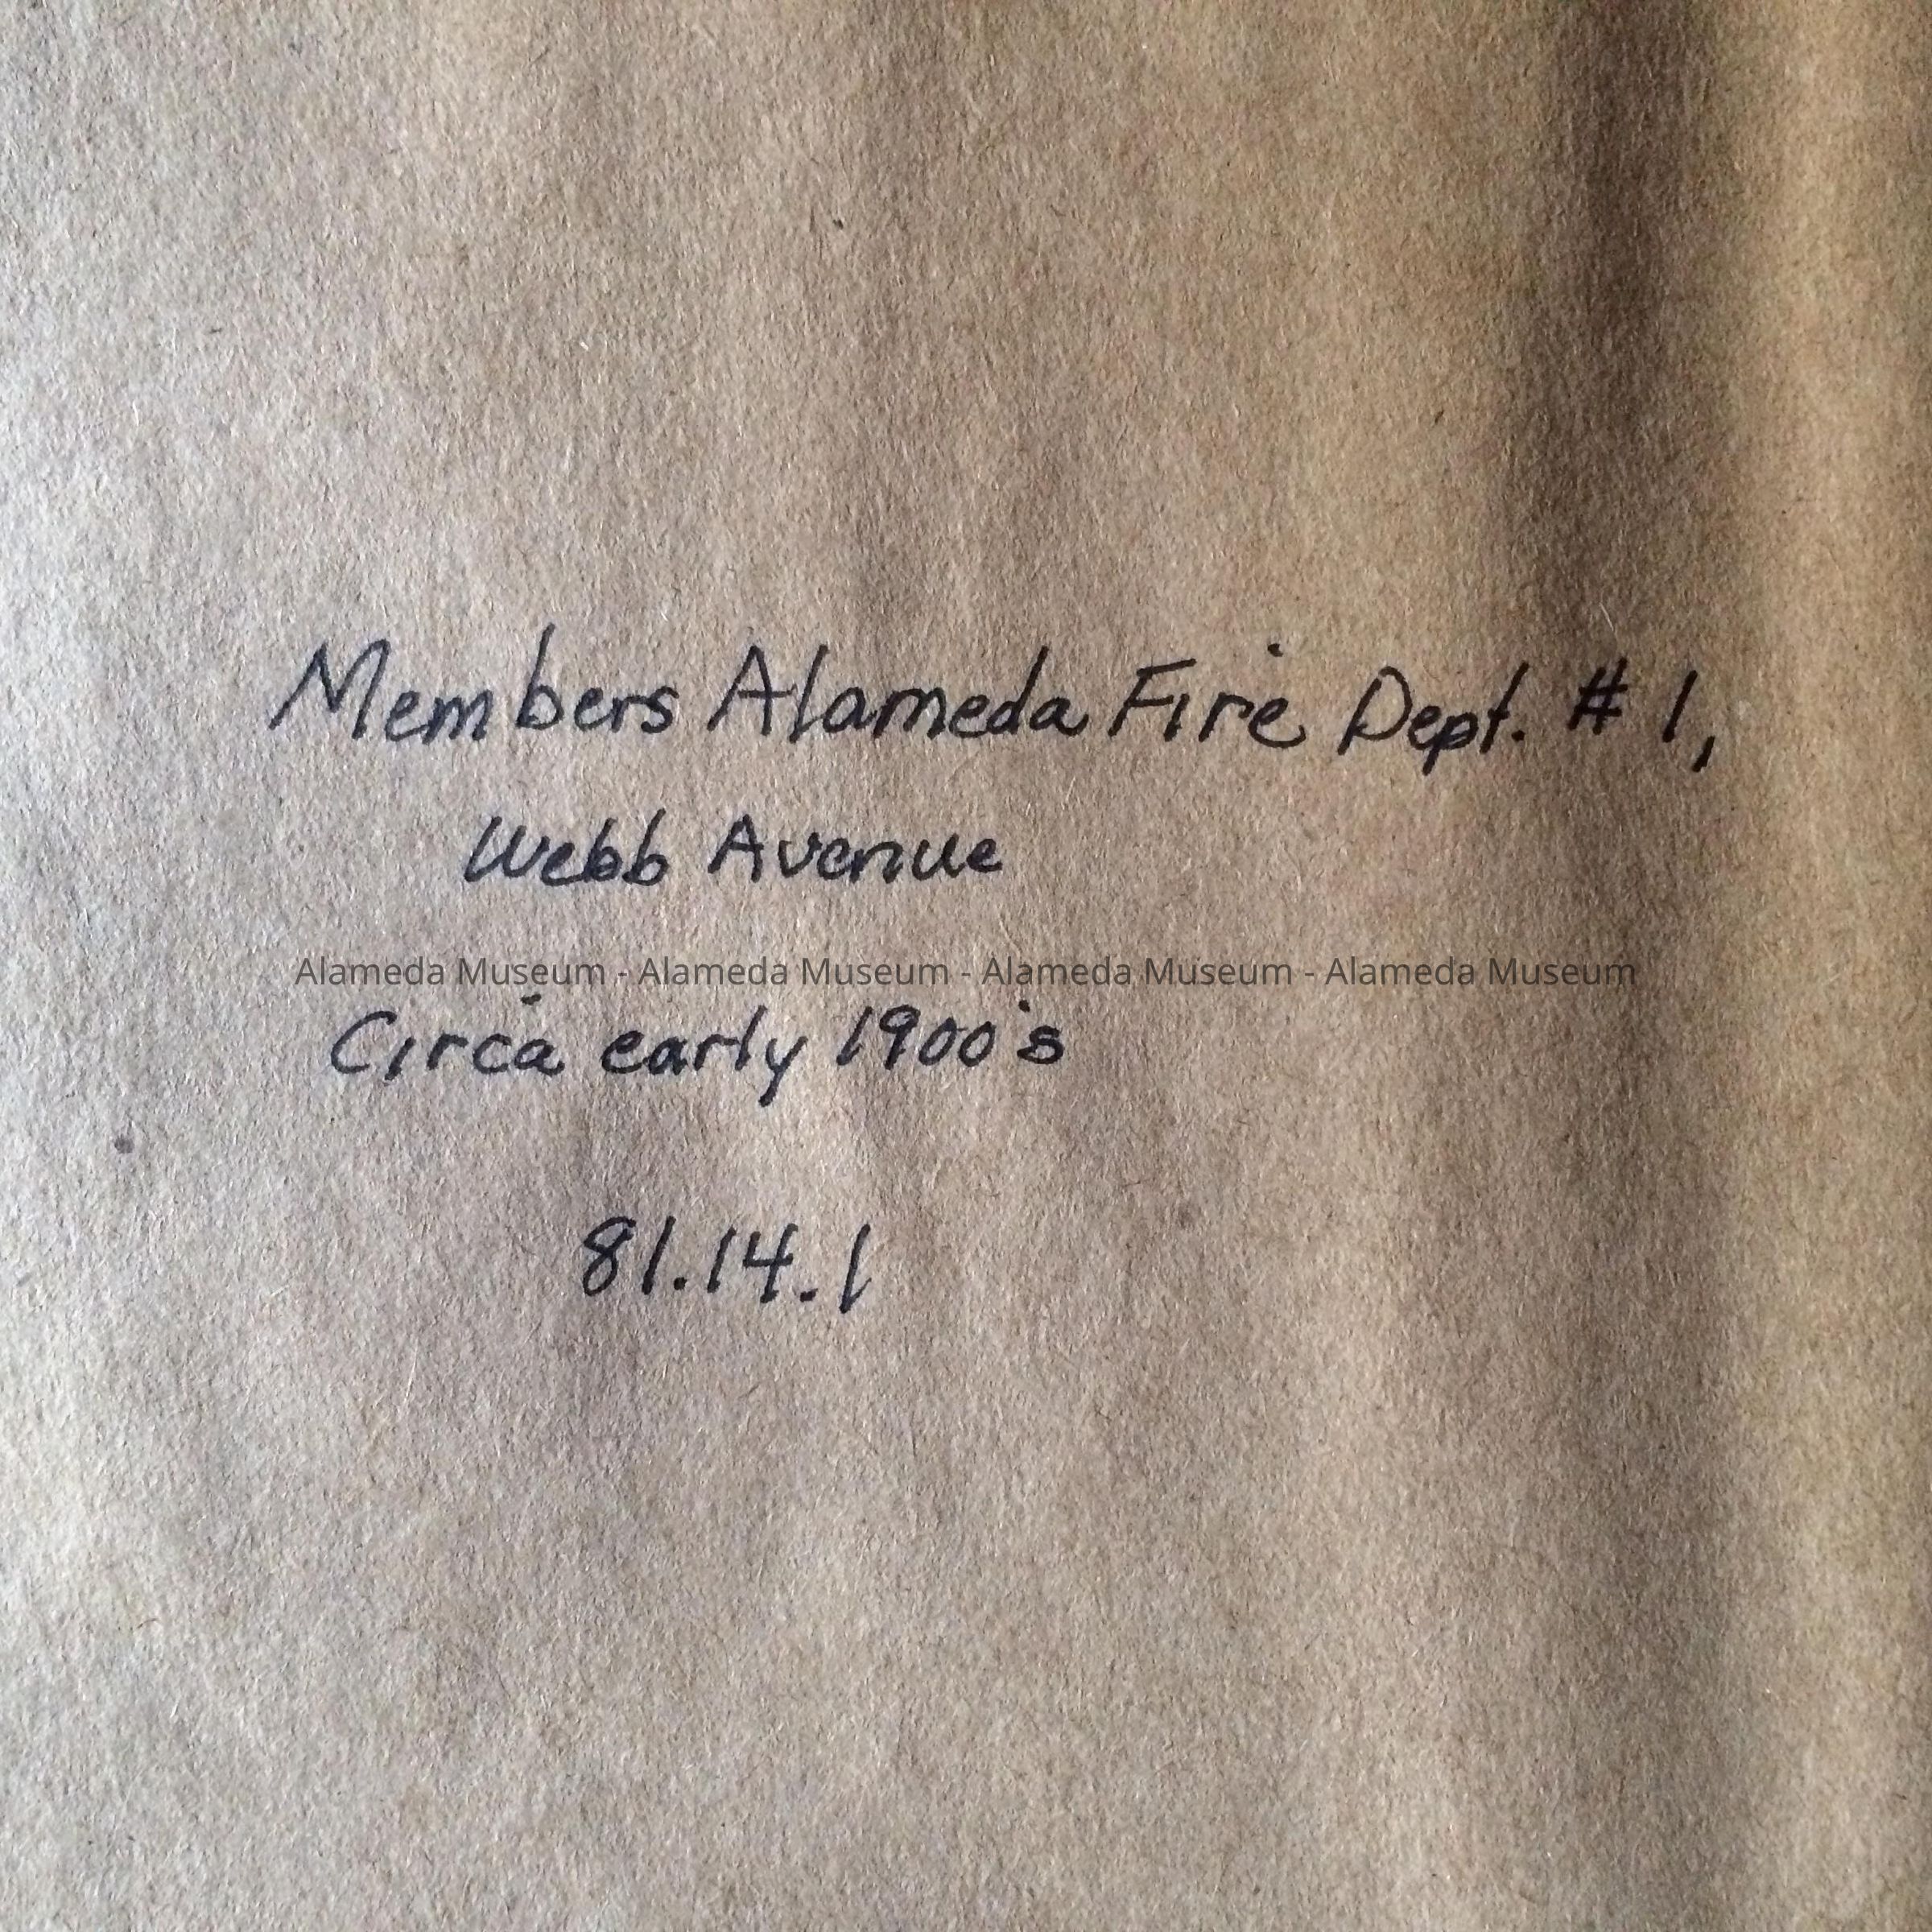 Members Alameda Fire Dept. # 1,
Webb Avenue
Alameda Museum - Alameda Museum - Alameda Museum - Alameda Museum
Circa early 1900's
81.14.1